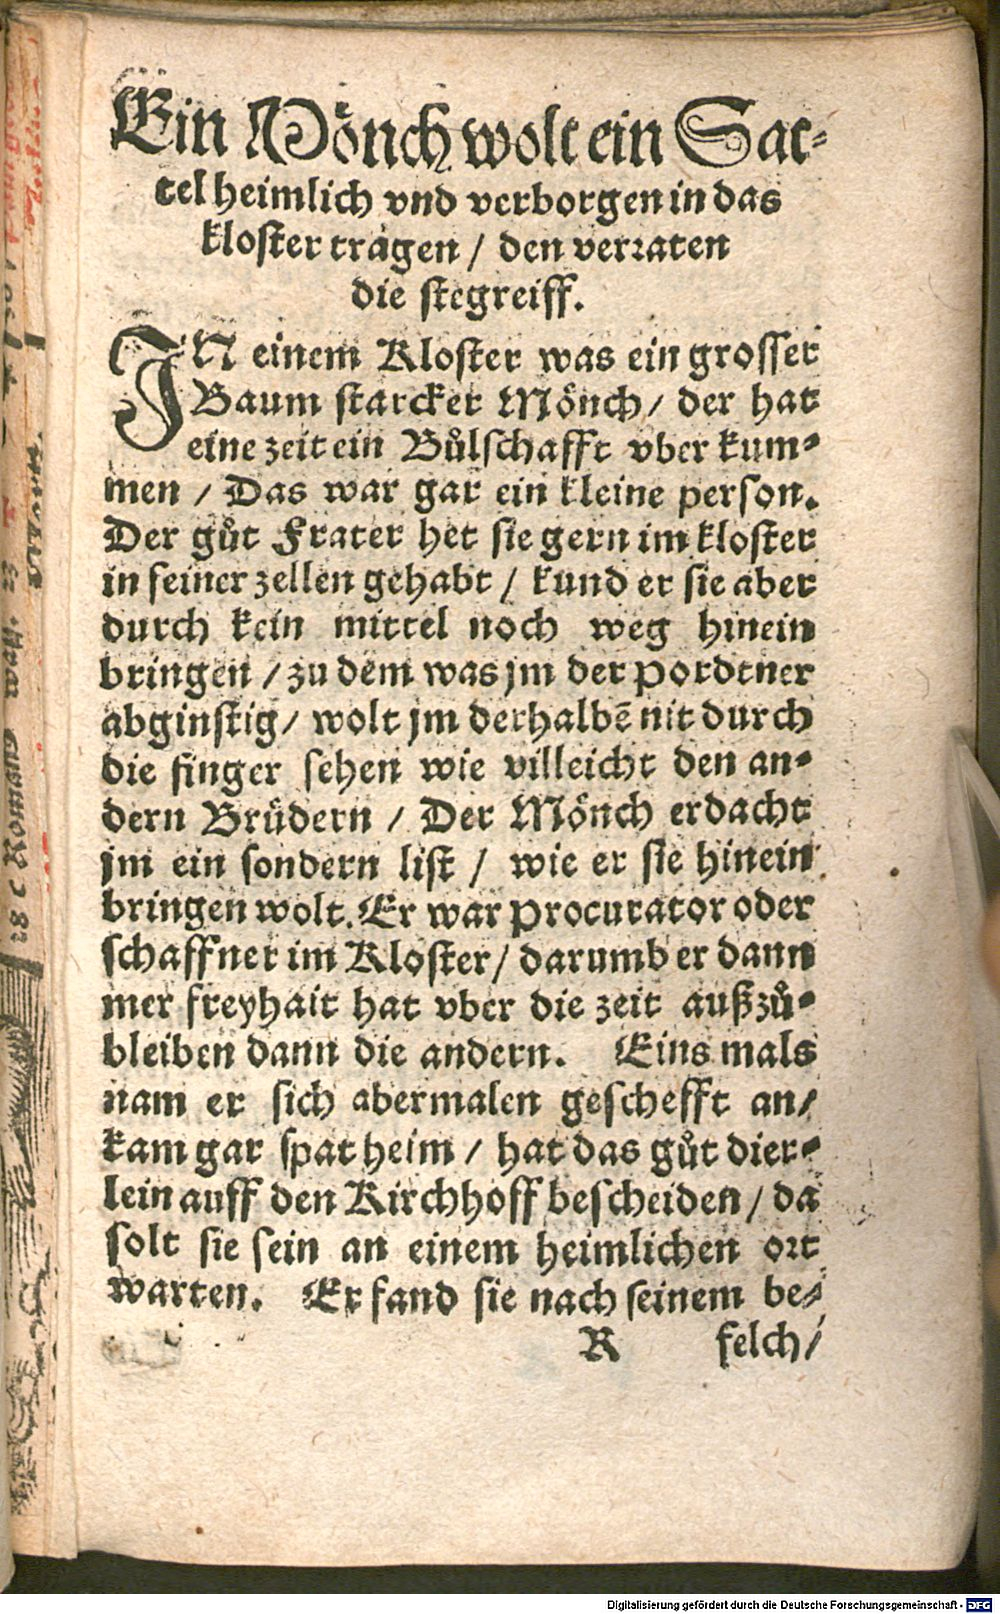 Ein Mönch wolt ein Sat-
tel heimlich vnd verborgen in das
kloster tragen / den verraten
die stegreiff.
IN einem Kloster was ein grosser
Baum starcker Mönch / der hat
eine zeit ein Bůlschafft vber kum-
men / Das war gar ein kleine person.
Der gůt Frater het sie gern im kloster
in seiner zellen gehabt / kund er sie aber
durch kein mittel noch weg hinein
bringen / zu dem was jm der Pordtner
abginstig / wolt jm derhalbē nit durch
die finger sehen wie villeicht den an-
dern Brüdern / Der Mönch erdacht
jm ein sondern list / wie er sie hinein
bringen wolt. Er war Procurator oder
schaffner im Kloster / darumb er dann
mer freyhait hat vber die zeit außzů-
bleiben dann die andern. Eins mals
nam er sich abermalen geschefft an /
kam gar spat heim / hat das gůt dier-
lein auff den Kirchhoff bescheiden / da
solt sie sein an einem heimlichen ort
warten. Er fand sie nach seinem be-
R felch /
Digitalisierung gefördert durch die Deutsche Forschungsgemeinschaft - DFG